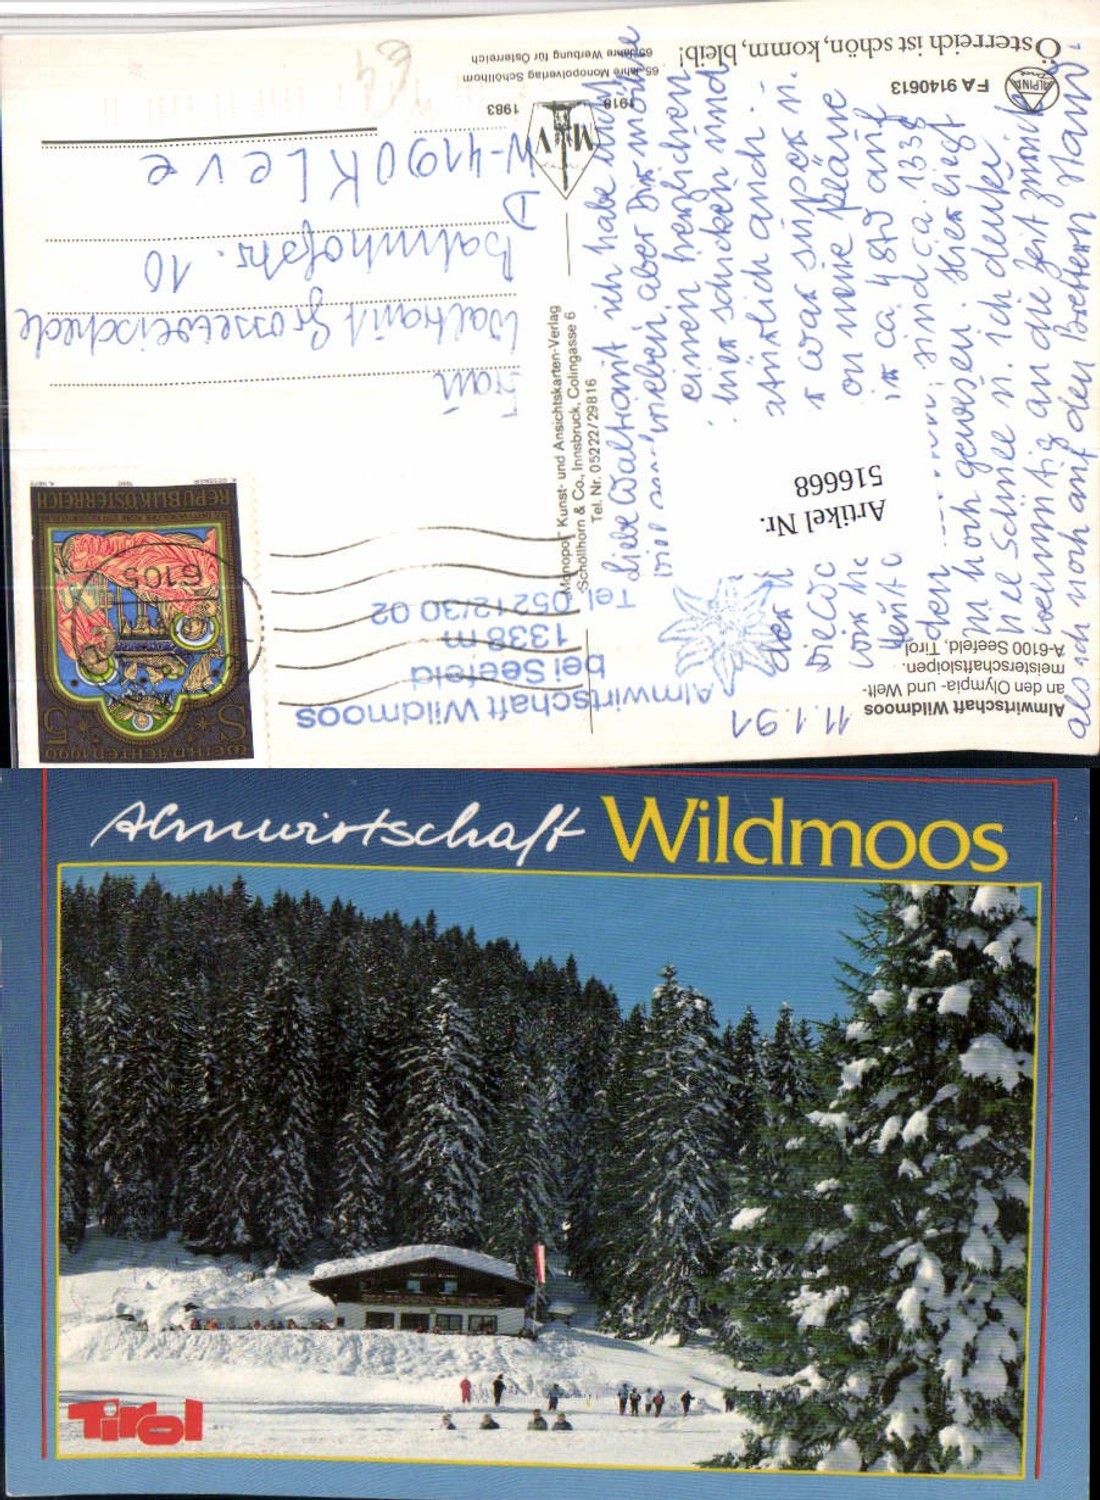 Almwirtschaft Wildmoos
an den Olympia- und Welt-
meisterschaftsloipen.
A-6100 Seefeld, Tirol
11.1.91
Liebe Waltraut ich habe
aber Dir möchte
einen herzlichen
schicken und
natürlich auch
war super u.
meine Pläne
ca 480 auf
sind ca. 1338
m hoch gewesen. Hier liegt
Schnee u. ich denke
wehmütig an die Zeit zurück
als ich noch auf den Brettern stand.
Artikel Nr.
516668
Almwirtschaft Wildmoos
bei Seefeld
1338 m
Tel. 05212/30 02
"Monopol" Kunst- und Ansichtskarten-Verlag
Schöllhorn & Co., Innsbruck, Colingasse 6
Tel. Nr. 05222/29816
WEIHNACHTEN 1990
S 5
REPUBLIK ÖSTERREICH
6105
Frau
Waltraut Grosseweischede
Bahnhofstr. 10
D
W-4190 Kleve
1918 MV 1983
65 Jahre Monopolverlag Schöllhorn
65 Jahre Werbung für Österreich
ALPINA
FA 9140613
Österreich ist schön, komm, bleib!
Almwirtschaft Wildmoos
Tirol